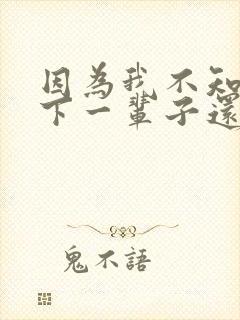 因為我不知
下一輩子還
鬼不語